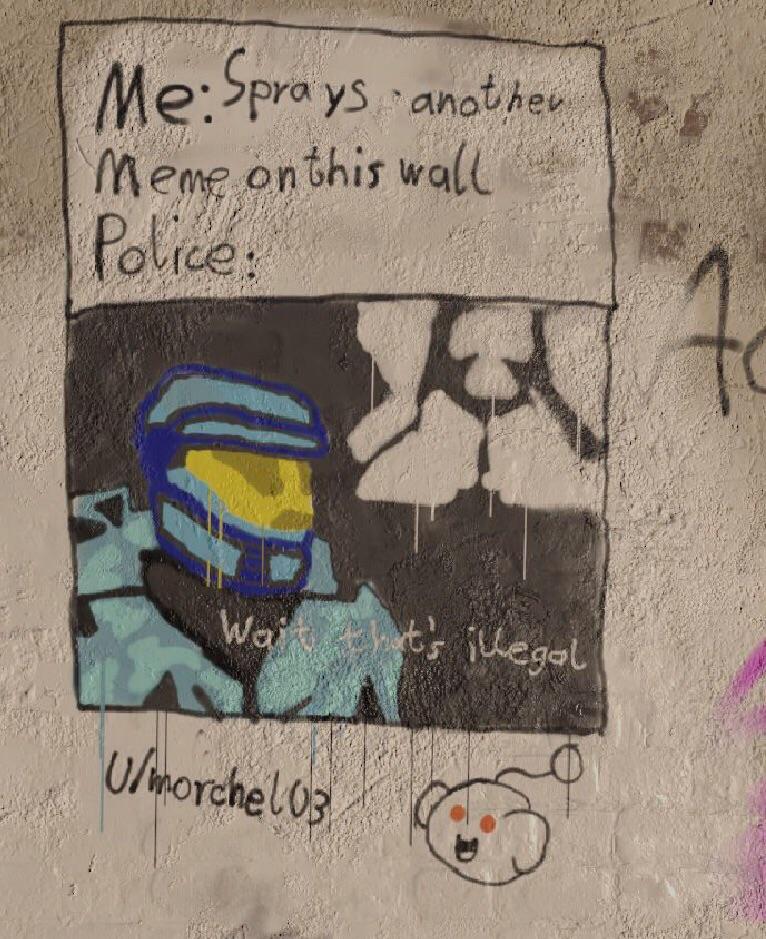 Me: Sprays another
Meme on this wall
Police:
Wait that's illegal
U/morchel03